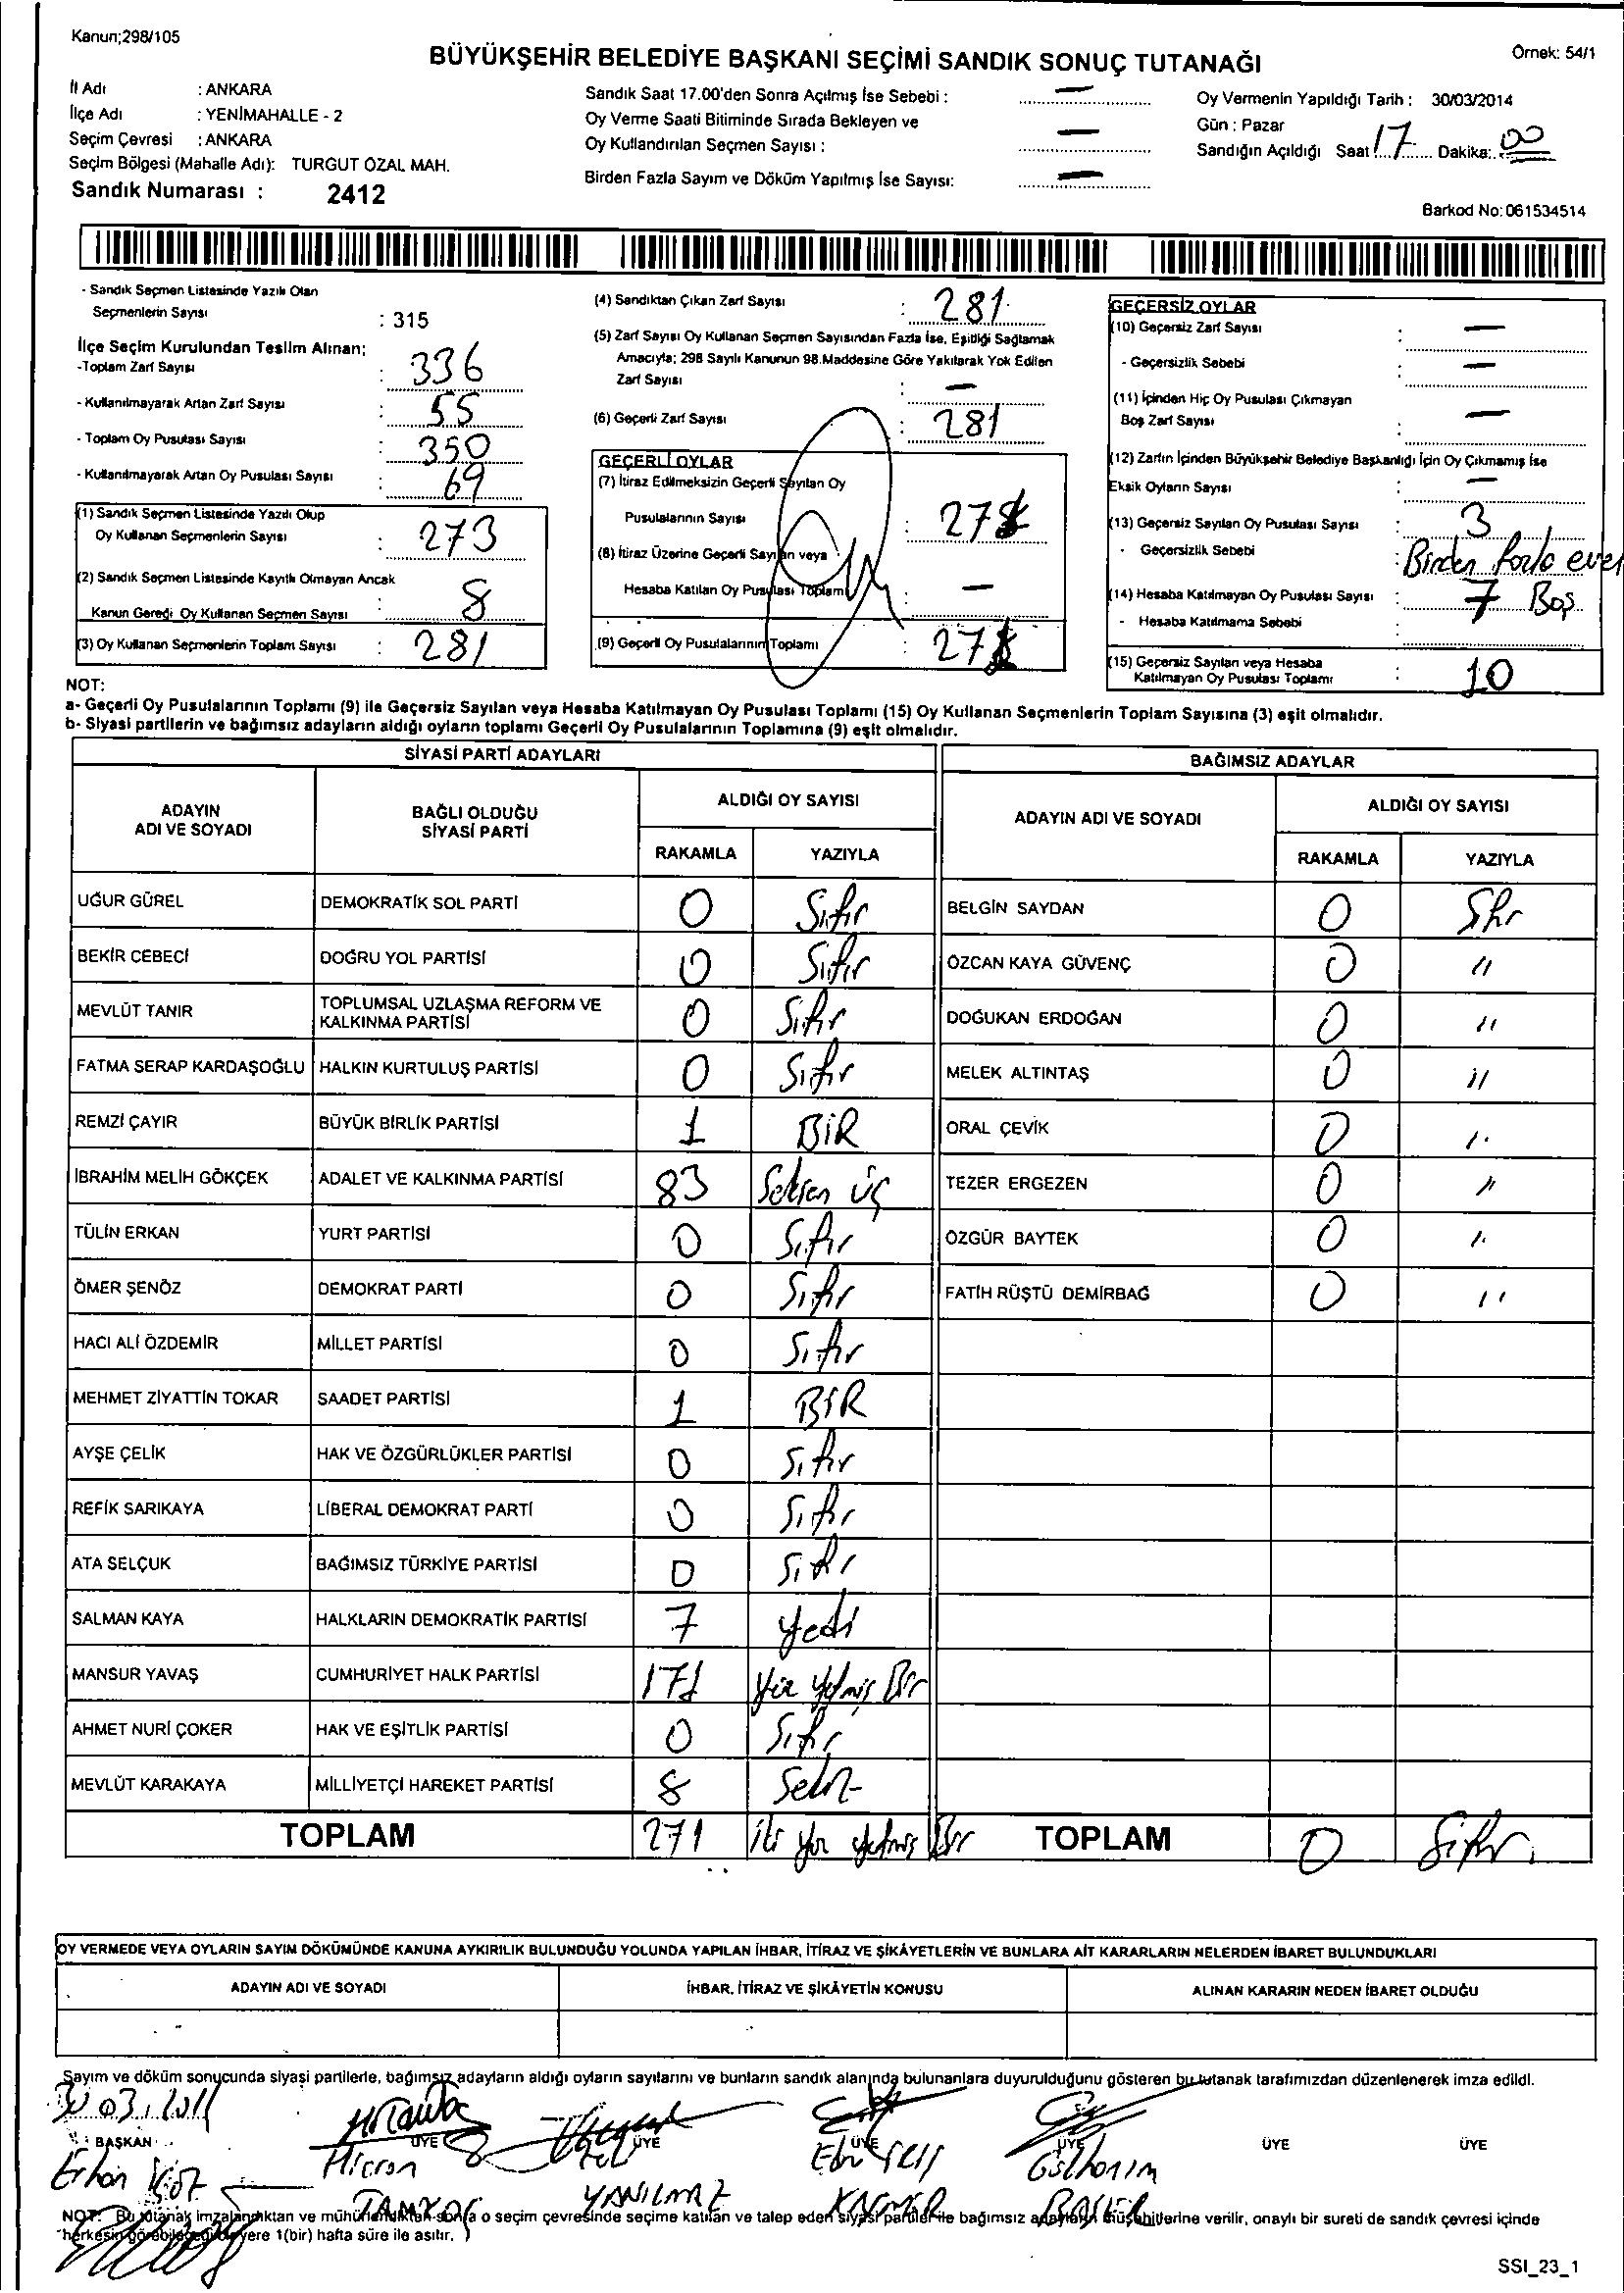 Kanun;298/105
BÜYÜKŞEHİR BELEDİYE BAŞKANI SEÇİMİ SANDIK SONUÇ TUTANAĞI
Örnek: 54/1
İl Adı : ANKARA
İlçe Adı : YENİMAHALLE - 2
Seçim Çevresi : ANKARA
Seçim Bölgesi (Mahalle Adı): TURGUT ÖZAL MAH.
Sandık Numarası : 2412
Sandık Saat 17.00'den Sonra Açılmış İse Sebebi : —
Oy Verme Saati Bitiminde Sırada Bekleyen ve
Oy Kullandırılan Seçmen Sayısı : —
Birden Fazla Sayım ve Döküm Yapılmış İse Sayısı: —
Oy Vermenin Yapıldığı Tarih : 30/03/2014
Gün : Pazar
Sandığın Açıldığı Saat 17 Dakika: 00
Barkod No:061534514
- Sandık Seçmen Listesinde Yazılı Olan
Seçmenlerin Sayısı : 315
İlçe Seçim Kurulundan Teslim Alınan;
-Toplam Zarf Sayısı : 336
- Kullanılmayarak Artan Zarf Sayısı : 55
- Toplam Oy Pusulası Sayısı : 350
- Kullanılmayarak Artan Oy Pusulası Sayısı : 69
(1) Sandık Seçmen Listesinde Yazılı Olup
Oy Kullanan Seçmenlerin Sayısı : 273
(2) Sandık Seçmen Listesinde Kayıtlı Olmayan Ancak
Kanun Gereği Oy Kullanan Seçmen Sayısı : 8
(3) Oy Kullanan Seçmenlerin Toplam Sayısı : 281
(4) Sandıktan Çıkan Zarf Sayısı : 281
(5) Zarf Sayısı Oy Kullanan Seçmen Sayısından Fazla İse, Eşitliği Sağlamak
Amacıyla; 298 Sayılı Kanunun 98.Maddesine Göre Yakılarak Yok Edilen
Zarf Sayısı : —
(6) Geçerli Zarf Sayısı : 281
GEÇERLİ OYLAR
(7) İtiraz Edilmeksizin Geçerli Sayılan Oy
Pusulalarının Sayısı : 27
(8) İtiraz Üzerine Geçerli Sayılan veya
Hesaba Katılan Oy Pusulası Toplamı : —
(9) Geçerli Oy Pusulalarının Toplamı : 27
GEÇERSİZ OYLAR
(10) Geçersiz Zarf Sayısı : —
- Geçersizlik Sebebi : —
(11) İçinden Hiç Oy Pusulası Çıkmayan
Boş Zarf Sayısı : —
(12) Zarfın İçinden Büyükşehir Belediye Başkanlığı İçin Oy Çıkmamış İse
Eksik Oyların Sayısı : —
(13) Geçersiz Sayılan Oy Pusulası Sayısı : 3
- Geçersizlik Sebebi : Birden fazla evet
(14) Hesaba Katılmayan Oy Pusulası Sayısı : 7 Boş
- Hesaba Katılmama Sebebi :
(15) Geçersiz Sayılan veya Hesaba
Katılmayan Oy Pusulası Toplamı : 10
NOT:
a- Geçerli Oy Pusulalarının Toplamı (9) ile Geçersiz Sayılan veya Hesaba Katılmayan Oy Pusulası Toplamı (15) Oy Kullanan Seçmenlerin Toplam Sayısına (3) eşit olmalıdır.
b- Siyasi partilerin ve bağımsız adayların aldığı oyların toplamı Geçerli Oy Pusulalarının Toplamına (9) eşit olmalıdır.
SİYASİ PARTİ ADAYLARI
BAĞIMSIZ ADAYLAR
ADAYIN ADI VE SOYADI
BAĞLI OLDUĞU SİYASİ PARTİ
ALDIĞI OY SAYISI
RAKAMLA YAZIYLA
ADAYIN ADI VE SOYADI
ALDIĞI OY SAYISI
RAKAMLA YAZIYLA
UĞUR GÜREL DEMOKRATİK SOL PARTİ 0 Sıfır BELGİN SAYDAN 0 Sıfır
BEKİR CEBECİ DOĞRU YOL PARTİSİ 0 Sıfır ÖZCAN KAYA GÜVENÇ 0 "
MEVLÜT TANIR TOPLUMSAL UZLAŞMA REFORM VE KALKINMA PARTİSİ 0 Sıfır DOĞUKAN ERDOĞAN 0 "
FATMA SERAP KARDAŞOĞLU HALKIN KURTULUŞ PARTİSİ 0 Sıfır MELEK ALTINTAŞ 0 "
REMZİ ÇAYIR BÜYÜK BİRLİK PARTİSİ 1 BİR ORAL ÇEVİK 0 "
İBRAHİM MELİH GÖKÇEK ADALET VE KALKINMA PARTİSİ 83 Seksen üç TEZER ERGEZEN 0 "
TÜLİN ERKAN YURT PARTİSİ 0 Sıfır ÖZGÜR BAYTEK 0 "
ÖMER ŞENÖZ DEMOKRAT PARTİ 0 Sıfır FATİH RÜŞTÜ DEMİRBAĞ 0 "
HACI ALİ ÖZDEMİR MİLLET PARTİSİ 0 Sıfır
MEHMET ZİYATTİN TOKAR SAADET PARTİSİ 1 BİR
AYŞE ÇELİK HAK VE ÖZGÜRLÜKLER PARTİSİ 0 Sıfır
REFİK SARIKAYA LİBERAL DEMOKRAT PARTİ 0 Sıfır
ATA SELÇUK BAĞIMSIZ TÜRKİYE PARTİSİ 0 Sıfır
SALMAN KAYA HALKLARIN DEMOKRATİK PARTİSİ 7 Yedi
MANSUR YAVAŞ CUMHURİYET HALK PARTİSİ 171 Yüz Yetmiş Bir
AHMET NURİ ÇOKER HAK VE EŞİTLİK PARTİSİ 0 Sıfır
MEVLÜT KARAKAYA MİLLİYETÇİ HAREKET PARTİSİ 8 Sekiz
TOPLAM 271 İki yüz yetmiş Bir TOPLAM 0 Sıfır
OY VERMEDE VEYA OYLARIN SAYIM DÖKÜMÜNDE KANUNA AYKIRILIK BULUNDUĞU YOLUNDA YAPILAN İHBAR, İTİRAZ VE ŞİKÂYETLERİN VE BUNLARA AİT KARARLARIN NELERDEN İBARET BULUNDUKLARI
ADAYIN ADI VE SOYADI
İHBAR, İTİRAZ VE ŞİKÂYETİN KONUSU
ALINAN KARARIN NEDEN İBARET OLDUĞU
Sayım ve döküm sonucunda siyasi partilerle, bağımsız adayların aldığı oyların sayılarını ve bunların sandık alanında bulunanlara duyurulduğunu gösteren bu tutanak tarafımızdan düzenlenerek imza edildi.
30.03.2014
BAŞKAN ÜYE ÜYE ÜYE ÜYE ÜYE ÜYE
Erhan
YANILMAZ
Gülhanım
NOT: Bu tutanak imzalandıktan ve mühürlendikten sonra o seçim çevresinde seçime katılan ve talep eden siyasi partiler ile bağımsız adayların müşahitlerine verilir, onaylı bir sureti de sandık çevresi içinde
herkesin görebileceği bir yere 1(bir) hafta süre ile asılır.
SSI_23_1